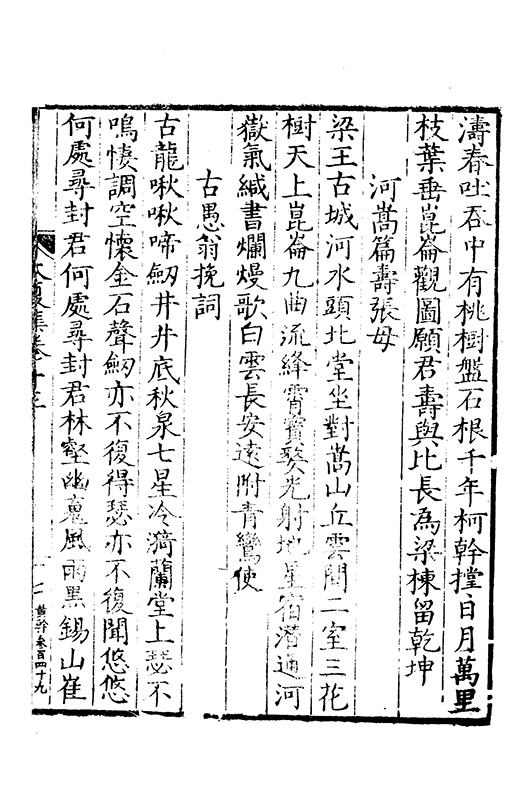 濤春吐吞中有桃樹盤石根千年柯幹摚日月萬里
枝葉垂崑崙觀圖願君壽與比長為梁棟留乾坤
河嵩篇壽張母
梁王古城河水頭北堂坐對嵩山丘雲開二室三花
樹天上崑崙九曲流絳霄寶婺光射地星宿潛通河
嶽氣緘書爛熳歌白雲長安遠附青鸞使
古愚翁挽詞
古龍啾啾啼劒井井底秋泉七星冷猗蘭堂上瑟不
鳴悽調空懷金石聲劒亦不復得瑟亦不復聞悠悠
何處尋封君何處尋封君林壑幽嵬風雨黑錫山崔
集卷十三
黃幹 卷百四十九